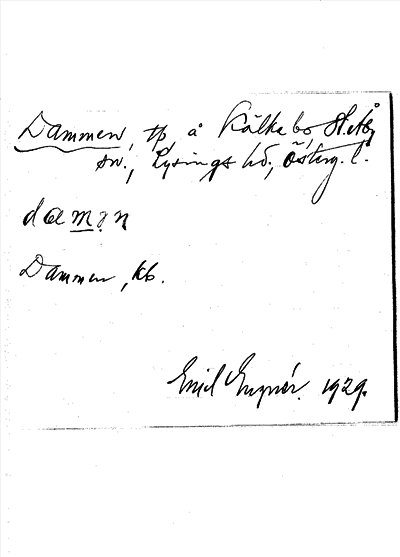 Dammen, tp å Kälkebo, St. Åby
sn., Lysings hd., Österg. l.
dæmən
Dammen, kb.
Emil 1929.